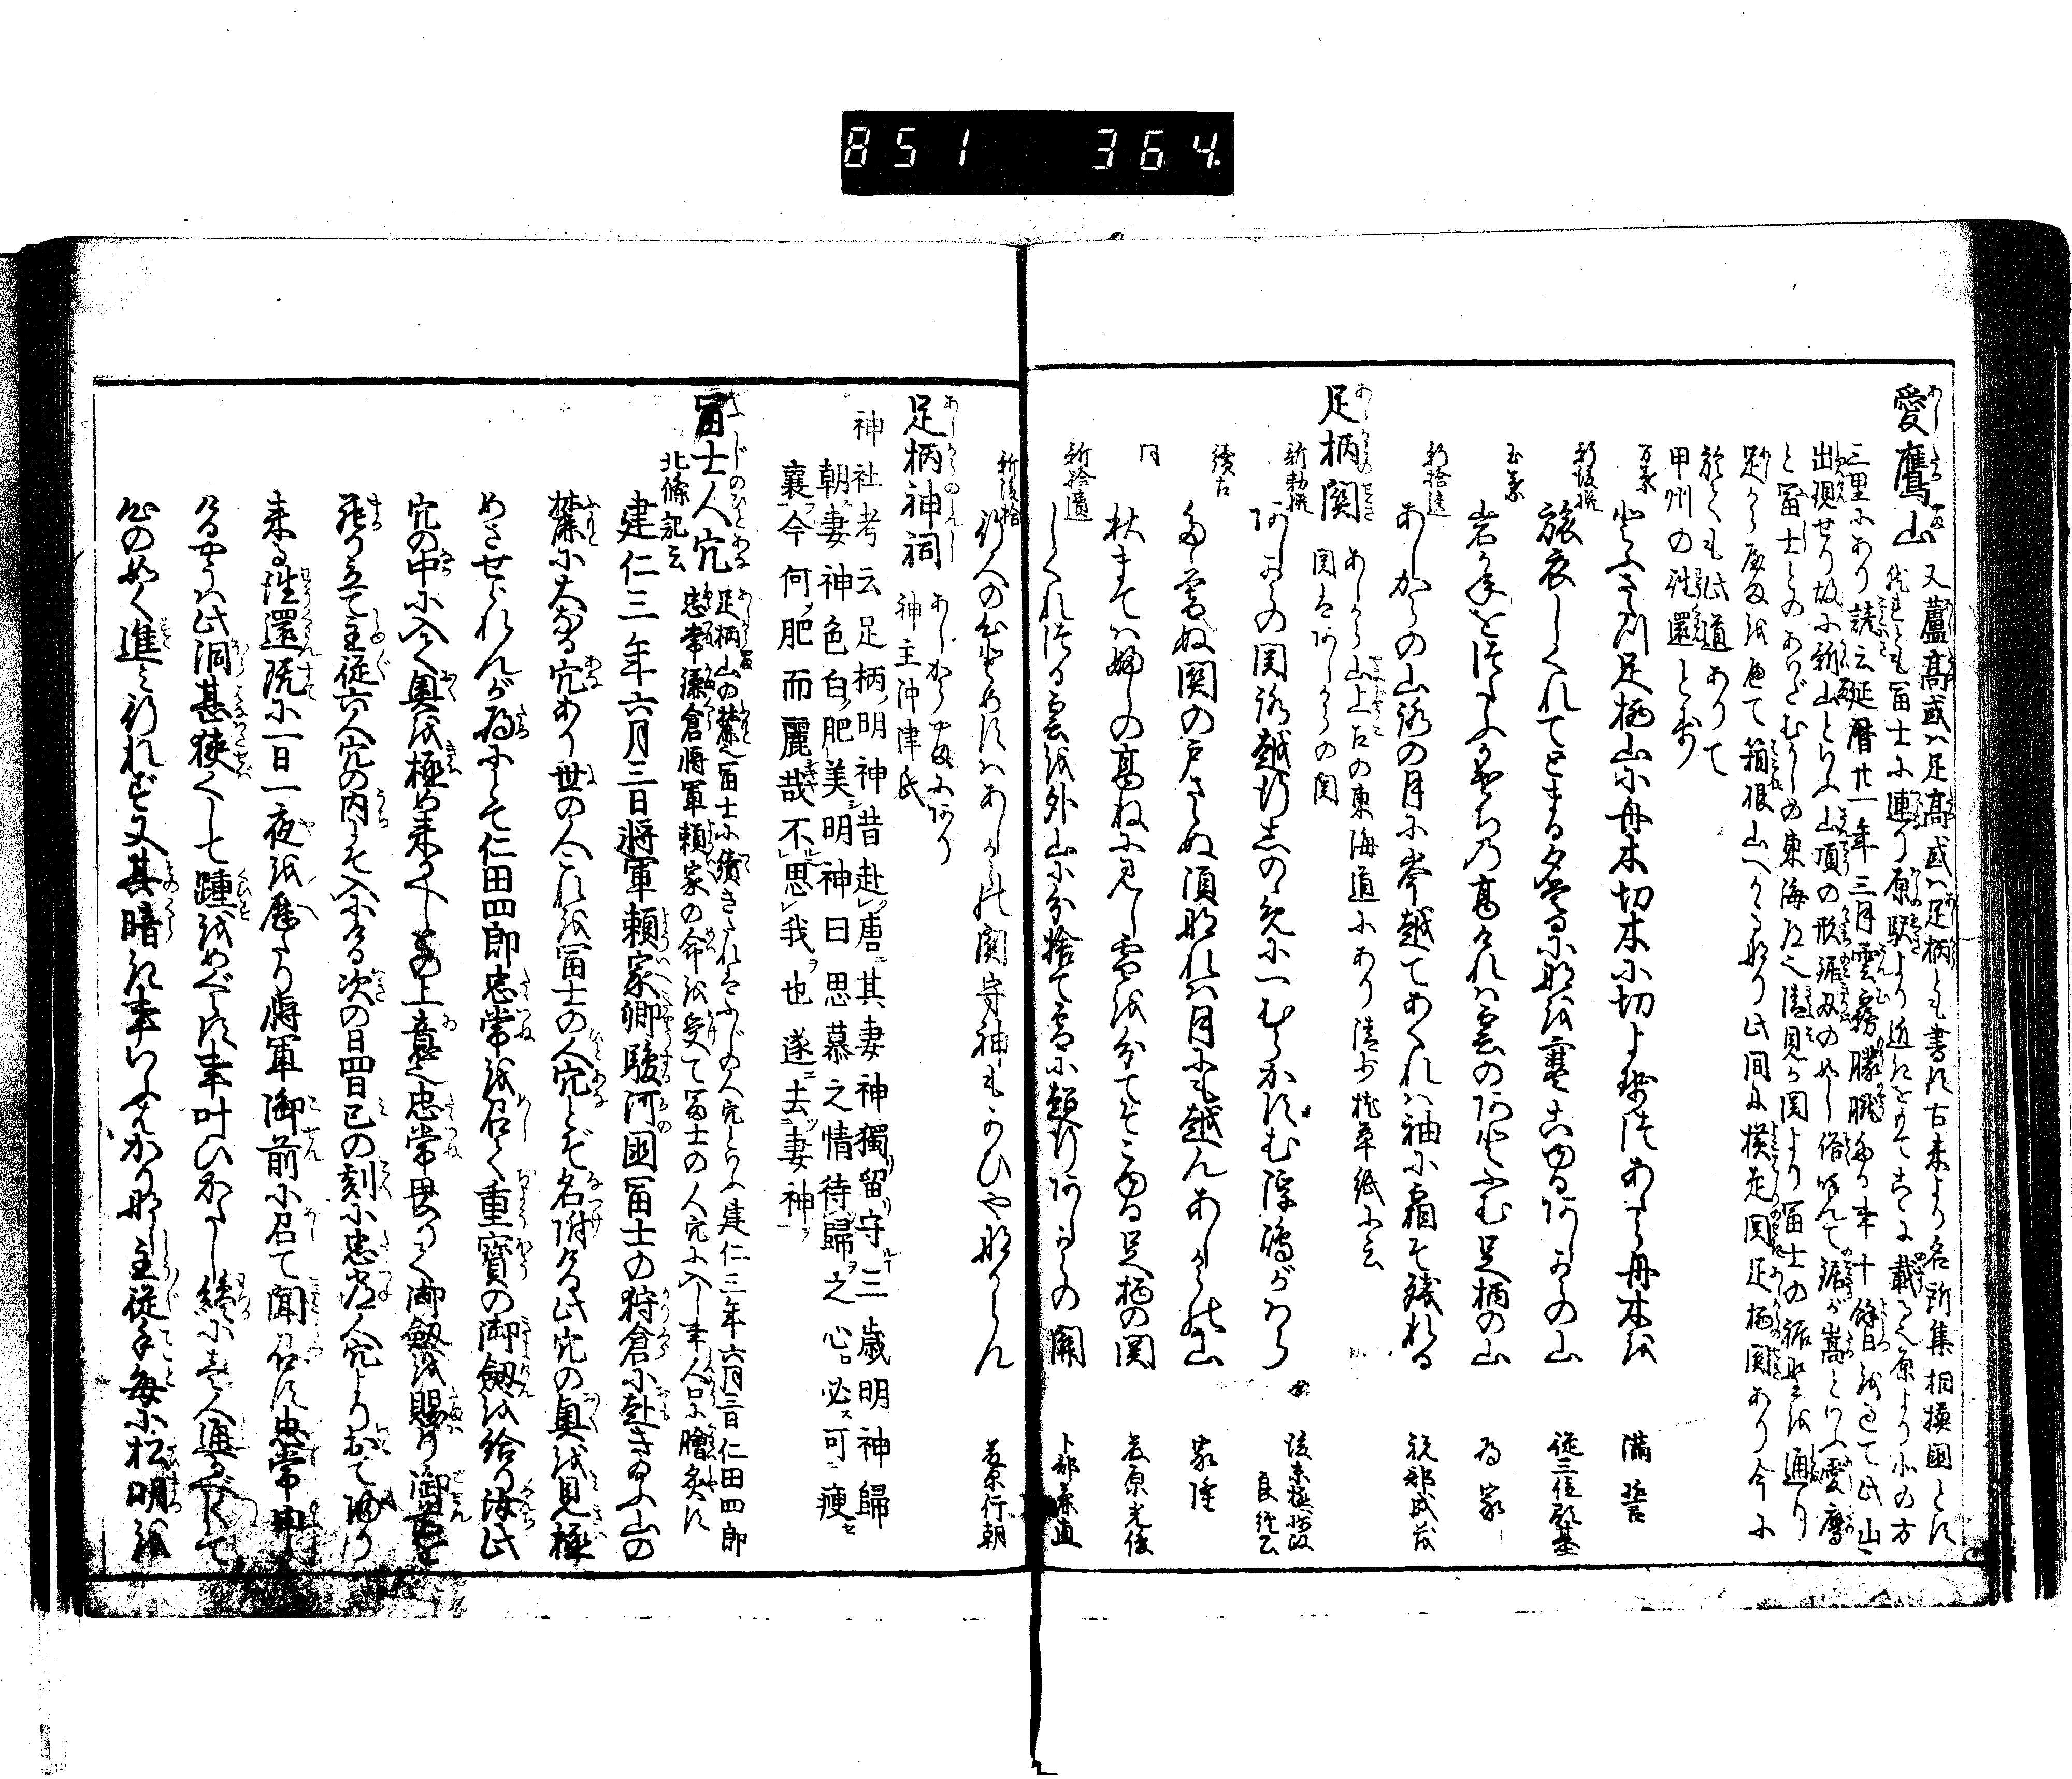 851 364
愛鷹山 又蘆高或ハ足高或ハ足柄とも書す古来より名所集相模国とす
然れとも冨士に連り原駅より近きをもてこゝに載る也原より北の方
三里にあり諺云延暦廿一年三月雲霧朦朧たる事十餘日を過て此山
出現せり故に新山といふ山頂の形鋸刃の如し俗呼んて鋸が嵩といふ愛鷹
と冨士とのあいだむかしの東海道也清見か関より冨士の裾野を通り
足から
箱根山へかゝるなり此間に横走関足柄関あり今に
於ても此道ありて
甲州の往還とす
万葉
とふさたて足柄山に舟木切木に切よせつあたら舟木を 満誓
新後撰
旅衣しくれてとまる夕暮になを雲こゆるあしからの山 従三位為基
玉葉
足柄の山 為家
新拾遺
あしからの山路の月に峯越てあくれは袖に霜そ残れる 祝部成茂
足柄関 あしから山上古の東海道にあり清少枕草紙に云
関はあしからの関
新勅撰
あしからの関路越行しのゝめに一むらかすむ浮嶋がはら 後京極摂政
良経公
續古
関の戸さゝぬ頃なれは月にも越んあしから山 家隆
同
秋まてはふしの高ねに見し雪を分てそこゆる足柄の関 藤原光俊
新拾遺
しくれつる雲を外山に分捨て雪に越行あしからの関 卜部兼直
新後拾
あしから関守神も
藤原行朝
足柄神祠 あしから山にあり
神主沖津氏
神社考云足柄明神昔赴唐其妻神獨留守三歳明神歸
朝妻神色白肥美明神曰思慕之情待歸之心必可痩
衰今何肥而麗哉不思我也遂去妻神
冨士人穴 足柄山の麓也冨士に續きたれはふじの人穴といふ建仁三年六月三日仁田四郎
忠常鎌倉将軍頼家の命を受て冨士の人穴に入し事人口に膾炙す
北條記云
建仁三年六月三日将軍頼家卿駿河國冨士の狩倉に赴き給ふ山の
麓に大なる穴あり世の人これを冨士の人穴とぞ名附ける此穴の奥を見極
めさせられんが為にとて仁田四郎忠常を召て重寶の御劔を給り汝此
穴の中に入て奥を極め来るへしとの上意也忠常畏りて御劔を賜り御前を
罷り立て主従六人穴の内にそ入にける次の日四日巳の刻に忠常人穴より出て帰り
来る往還既に一日一夜を歴たり将軍御前に召て聞召す忠常申し
けるやうハ此洞甚狭くして踵をめぐらす事叶ひがたし纔に壱人通るべくて
心の如く進ミ行れず又其暗き事いふはかりなし主従手毎に松明を